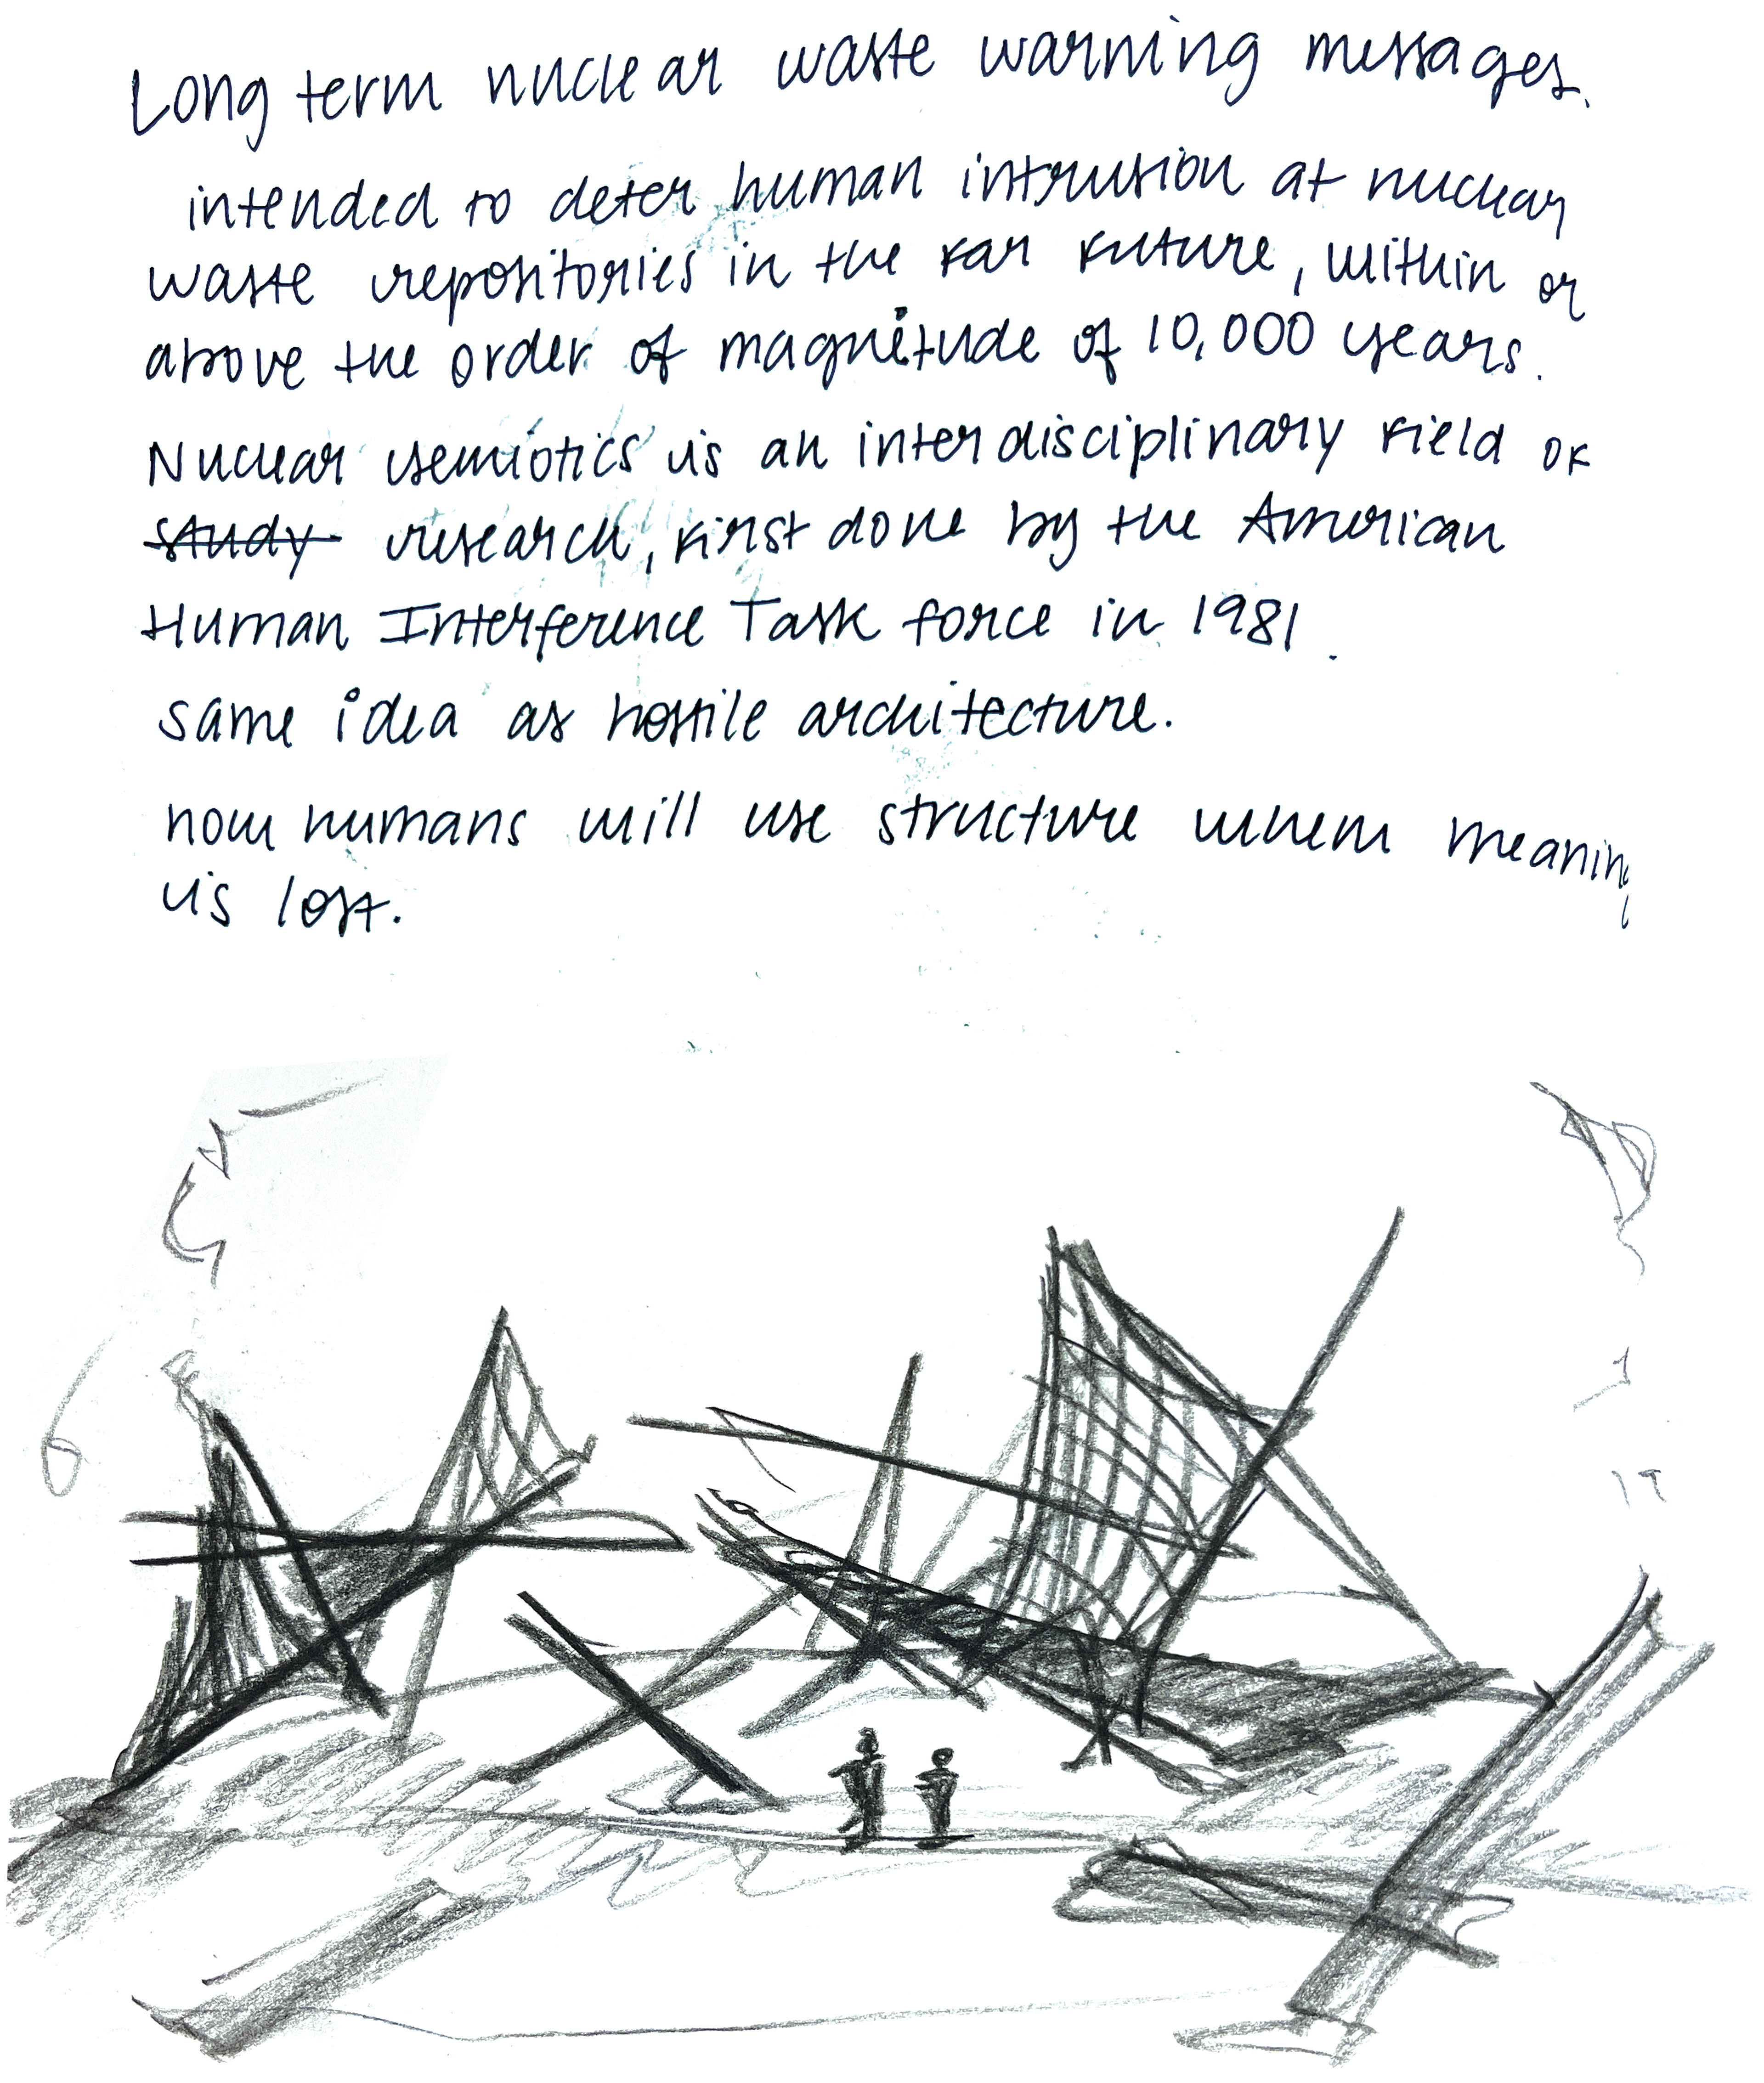 Long term nuclear waste warning messages.
intended to deter human intrusion at nuclear
waste repositories in the far future, within or
above the order of magnitude of 10,000 years.
Nuclear semiotics is an interdisciplinary field of
study research, first done by the American
Human Interference Task force in 1981.
same idea as hostile architecture.
how humans will use structure when meaning
is lost.